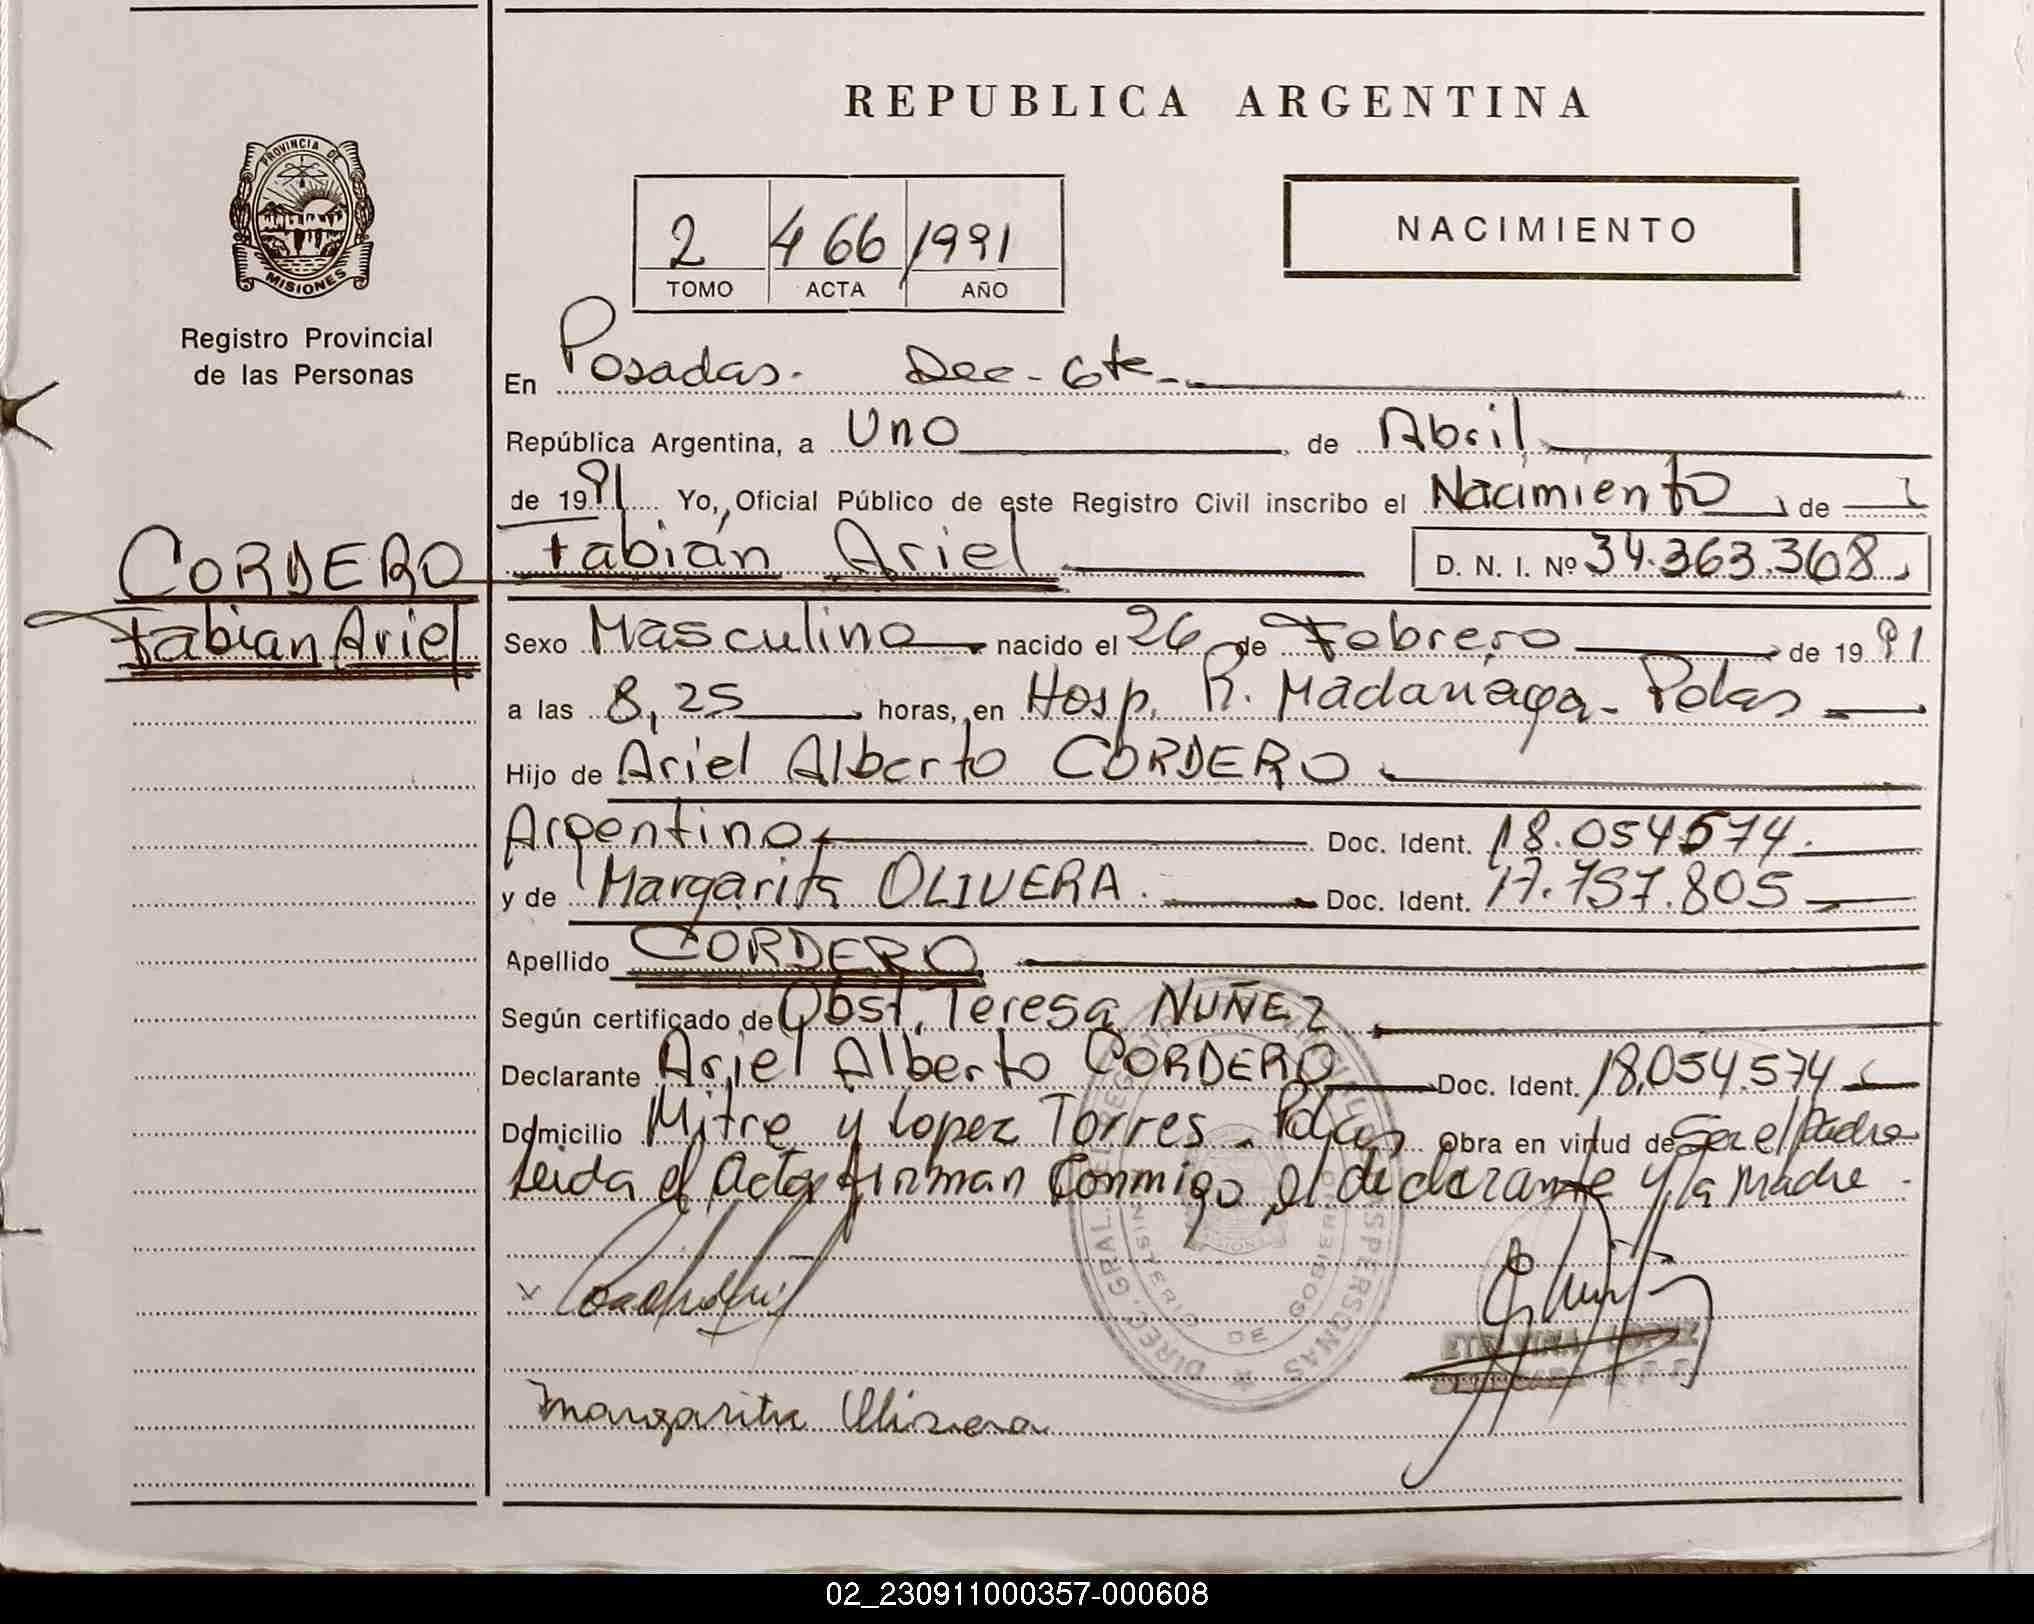 REPUBLICA ARGENTINA
PROVINCIA DE
MISIONES
Registro Provincial
de las Personas
2 466 1991
TOMO ACTA AÑO
NACIMIENTO
En Posadas. Dec - Cte
República Argentina, a Uno de Abril
de 1991 Yo, Oficial Público de este Registro Civil inscribo el Nacimiento de
CORDERO
Fabian Ariel
Fabián Ariel D. N. I. Nº 34.363.368
Sexo Masculino nacido el 26 de Febrero de 1991
a las 8,25 horas, en Hosp. R. Madariaga - Pdas
Hijo de Ariel Alberto CORDERO
Argentino Doc. Ident. 18.054574.
y de Margarita OLIVERA. Doc. Ident. 17.757.805
Apellido CORDERO
Según certificado de Obst. Teresa NUÑEZ
Declarante Ariel Alberto CORDERO Doc. Ident. 18.054.574
Domicilio Mitre y Lopez Torres - Pdas Obra en virtud de Ser el Padre
Leida el Acta firman Conmigo el declarante y la Madre.
DIREC. GRAL. DEL REG. PERSONAS
MINISTERIO DE GOBIERNO
ETELVINA LOPEZ
Margarita Olivera
02_230911000357-000608